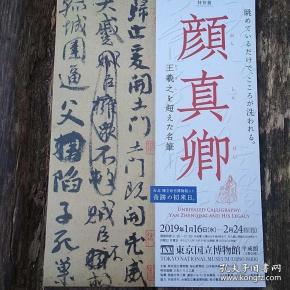 特別展
眺めているだけで、こころが洗われる。
顔真卿
王羲之を超えた名筆
奇跡の初来日。
UNRIVALED CALLIGRAPHY:
YAN ZHENQING AND HIS LEGACY
2019年1月16日(水)―2月24日(日)
東京国立博物館 平成館
TOKYO NATIONAL MUSEUM
歸世處閒土門土門既開凶威
大蹙賊臣不救
孤城圍逼父陷子死巢